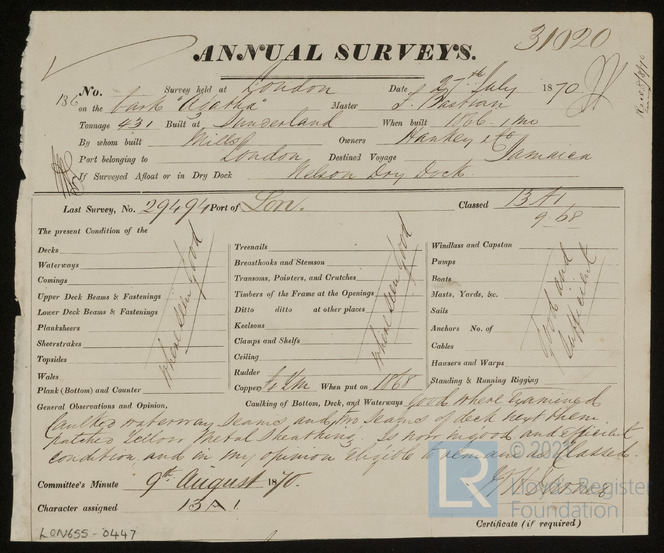 31020
ANNUAL SURVEYS.
136 No. Survey held at London Date 27th July 1870
on the bark "Agatha" Master J. Bastian
Tonnage 431 Built at Sunderland When built 1866. 1 mo
By whom built Mills Owners Hankey & Co
Port belonging to London Destined Voyage Jamaica
If Surveyed Afloat or in Dry Dock Nelson Dry Dock.
Last Survey, No. 29494 Port of Lon. Classed 13 A1
9.68
The present Condition of the
Decks
Waterways
Comings
Upper Deck Beams & Fastenings
Lower Deck Beams & Fastenings
Planksheers
Sheerstrakes
Topsides
Wales
Plank (Bottom) and Counter
where seen good
Treenails
Breasthooks and Stemson
Transoms, Pointers, and Crutches
Timbers of the Frame at the Openings
Ditto ditto at other places
Keelsons
Clamps and Shelfs
Ceiling
Rudder
Copper When put on 1868
where seen good
Windlass and Capstan
Pumps
Boats
Masts, Yards, &c.
Sails
Anchors No. of
Cables
Hausers and Warps
Standing & Running Rigging
good and sufficient
General Observations and Opinion, Caulking of Bottom, Deck, and Waterways good where examined
caulked waterway seams and two seams of deck next them
patched Yellow Metal Sheathing. Is now in good and efficient
condition and in my opinion eligible to remain as Classed.
Committee's Minute 9th August 1870.
Character assigned 13 A 1
Certificate (if required)
LON655-0447
LR
© 2021
Lloyd's Register
Foundation